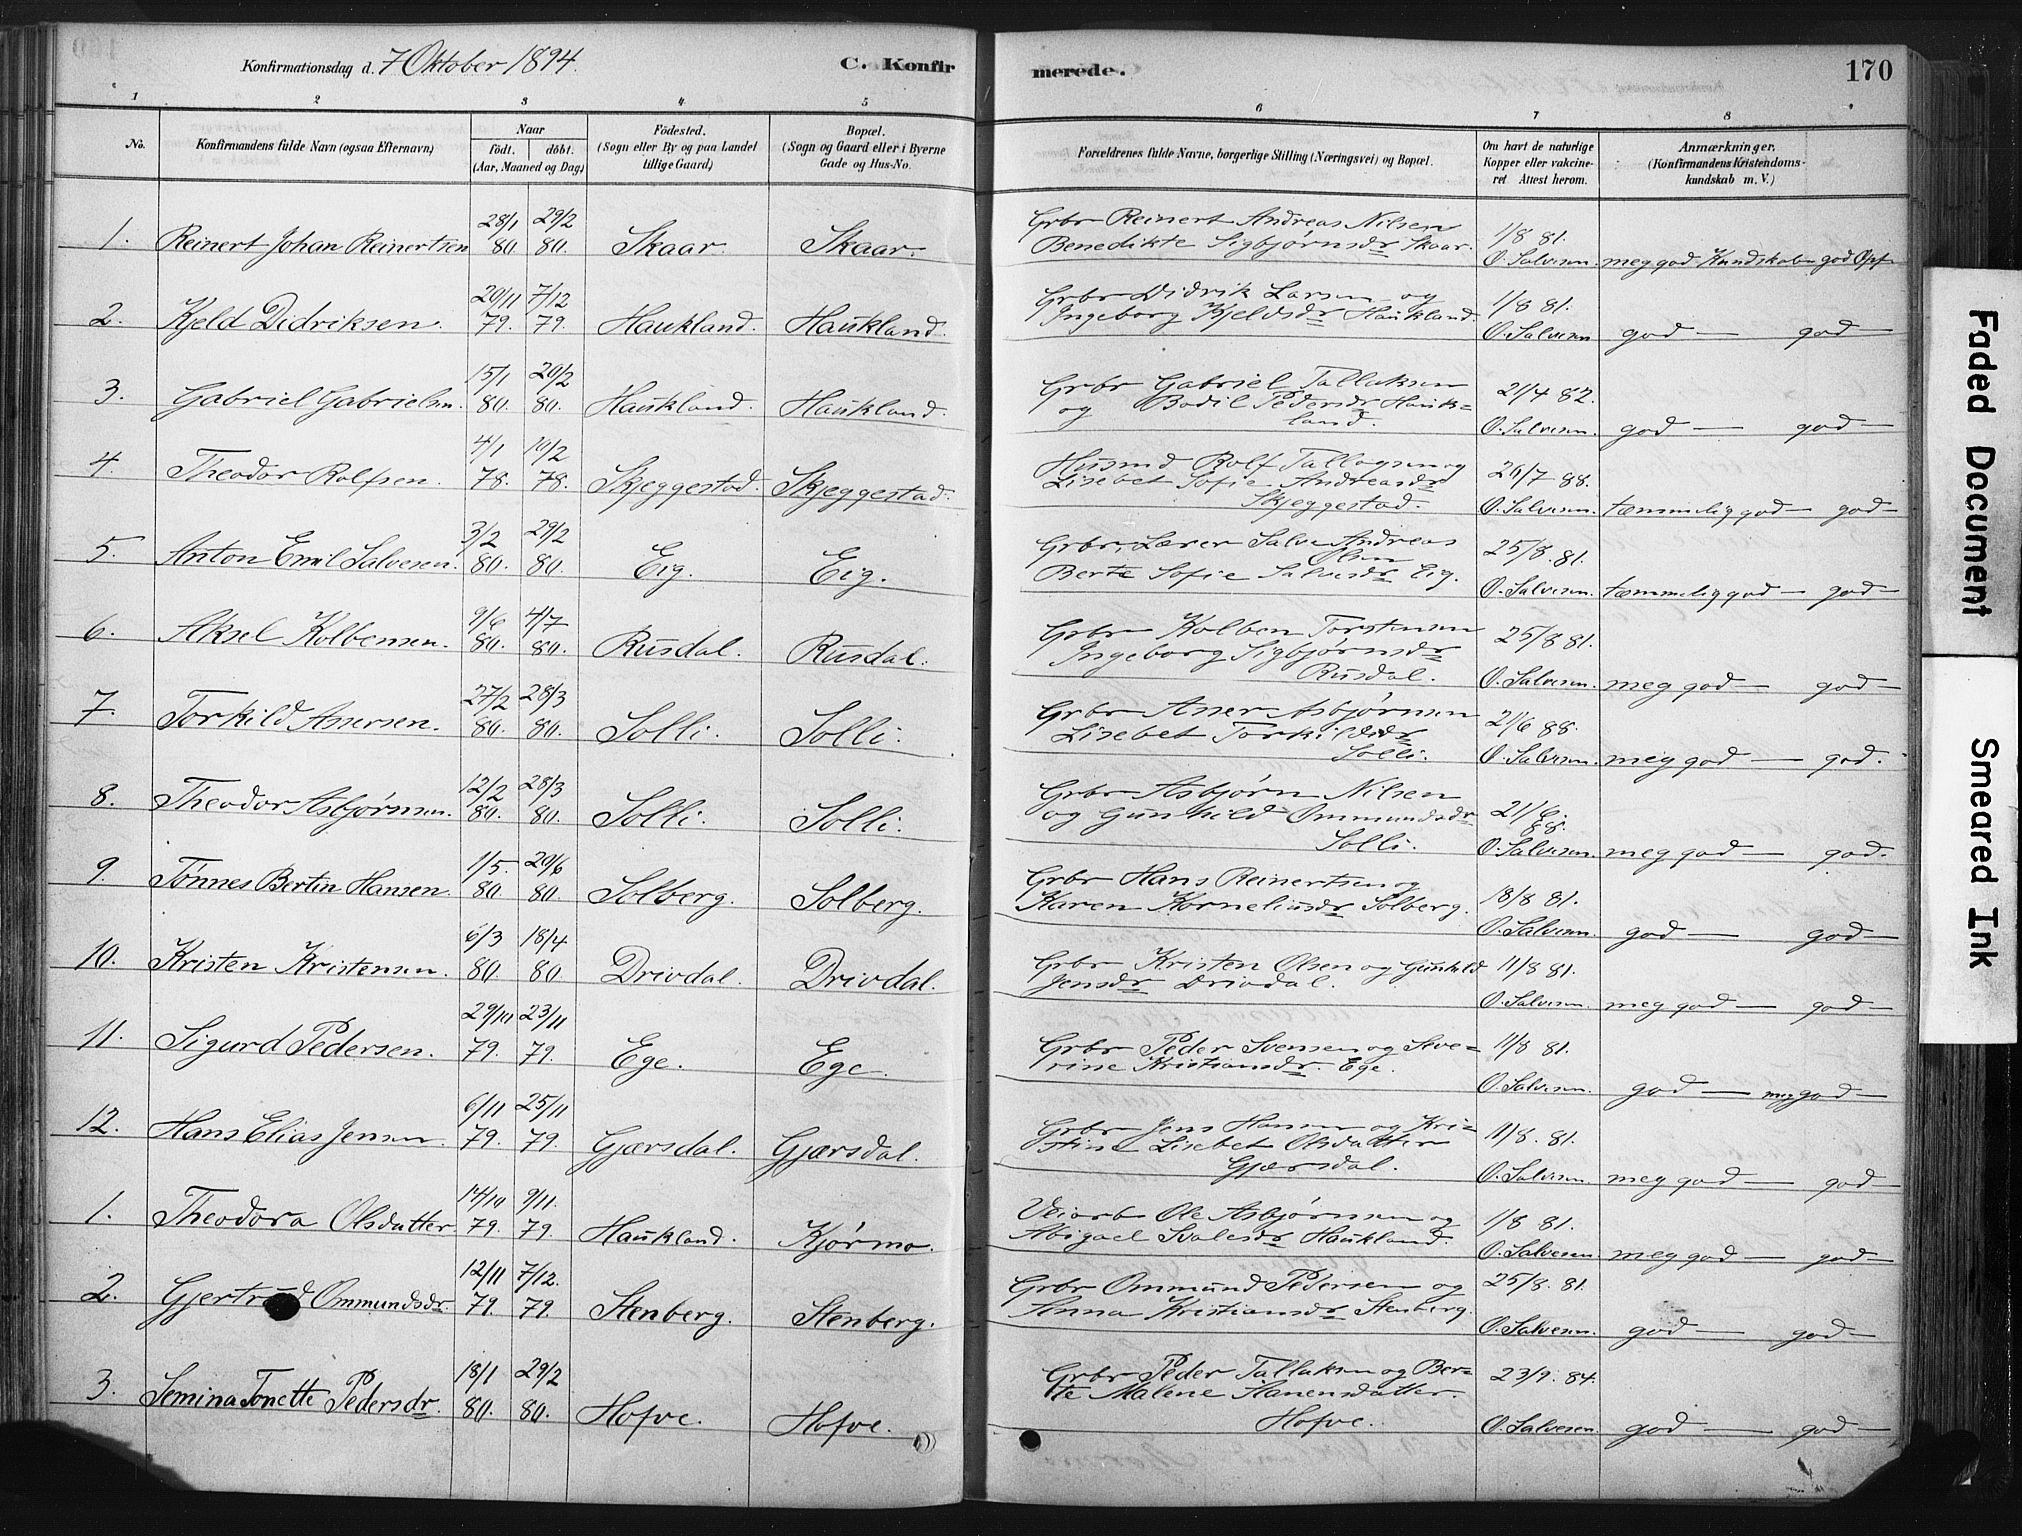 Konfirmationsdag d. 7 Oktober 1894.
C. Konfirmerede.
170
1 2 3 4 5 6 7 8
No.
Konfirmandens fulde Navn (ogsaa Efternavn)
Naar
födt. döbt.
(Aar, Maaned og Dag)
Födested.
(Sogn eller By og paa Landet
tillige Gaard)
Bopæl.
(Sogn og Gaard eller i Byerne
Gade og Hus-No.
Forældrenes fulde Navne, borgerlige Stilling (Næringsvei) og Bopæl.
Om havt de naturlige
Kopper eller vakcine-
ret Attest herom.
Anmærkninger.
(Konfirmandens Kristendoms-
kundskab m. V.)
1. Reinert Johan Reinertsen 28/1 80. 29/2 80. Skaar. Skaar.
Grbr Reinert Andreas Nilsen
Benedikte Sigbjørnsdr Skaar.
1/8 81.
O. Salvesen. meg god Kundskab god Opf
2. Kjeld Didriksen. 20/11 79. 7/12 79. Haukland. Haukland.
Grbr Didrik Larsen og
Ingeborg Kjeldsdr Haukland.
1/8 81.
O. Salvesen god — god —
3. Gabriel Gabrielsen. 15/1 80. 20/2 80. Haukland. Haukland.
Grbr Gabriel Tallaksen
og Bodil Pedersdr Hauk=
land.
21/4 82.
O. Salvesen. god — god —
4. Theodor Rolfsen. 4/1 78. 10/2 78. Skjeggestad. Skjeggestad.
Husmd Rolf Tallagsen og
Lisebet Sofie Andreasdr
Skjeggestad.
26/7 88.
O. Salvesen. tæmmelig god — god —
5. Anton Emil Salvesen. 3/2 80. 29/2 80. Eig. Eig.
Grbr, Lærer Salve Andreas
Olsen
Berte Sofie Salvesdr Eig.
25/8. 81.
O. Salvesen. tæmmelig god — god —
6. Aksel Kolbensen. 9/6 80. 4/7 80. Rusdal. Rusdal.
Grbr Kolben Torstensen
Ingeborg Sigbjørnsdr
Rusdal.
25/8 81.
O. Salvesen. meg god — god —
7. Torkild Assersen. 27/2 80. 28/3 80. Solli. Solli.
Grbr Asser Asbjørnsen
Lisebet Torkildsdr
Solli.
21/6 88.
O. Salvesen. meg god — god.
8. Theodor Asbjørnsen. 12/2 80. 28/3 80. Solli. Solli.
Grbr Asbjørn Nilsen
og Gunhild Ommundsdr
Solli.
21/6.
88.
O. Salvesen. meg god — god.
9. Tønnes Bertin Hansen. 1/5. 80. 20/6 80. Solberg. Solberg.
Grbr Hans Reinertsen og
Karen Korneliusdr Solberg.
18/8 81.
O. Salvesen. god — god —
10. Kristen Kristensen. 6/3 80. 18/4 80. Drivdal. Drivdal.
Grbr Kristen Olsen og Gunhild
Jensdr Drivdal.
11/8 81.
O. Salvesen. meg god — god —
11. Sigurd Pedersen. 29/10 79. 23/11 79. Ege. Ege.
Grbr Peder Svensen og Seve=
rine Kristiansdr. Ege.
11/8 81.
O. Salvesen. god — meg god —
12. Hans Elias Jensen. 6/11 79. 25/11 79. Gjærsdal. Gjærsdal.
Grbr Jens Hansen og Kri=
stine Lisebet Olsdatter
Gjærsdal.
11/8. 81.
O. Salvesen. meg god — god —
1. Theodora Olsdatter 14/10 79. 9/11. 79. Haukland. Kjørmo.
Veiarb Ole Asbjørnsen og
Abigael Salvesdr Haukland.
1/8 81.
O. Salvesen. meg god — god —
2. Gjertrud Ommundsdr. 12/11 79. 7/12. 79. Stenberg. Stenberg.
Grbr Ommund Pedersen og
Anna Kristiansdr Stenberg.
25/8. 81.
O. Salvesen. god — god —
3. Semina Tonette Pedersdr. 18/1 80. 29/2 80. Hofve. Hofve.
Grbr Peder Tallaksen og Ber=
te Malene Hansensdatter.
Hofve.
23/9. 84.
O. Salvesen god — god —
Faded Document
Smeared Ink